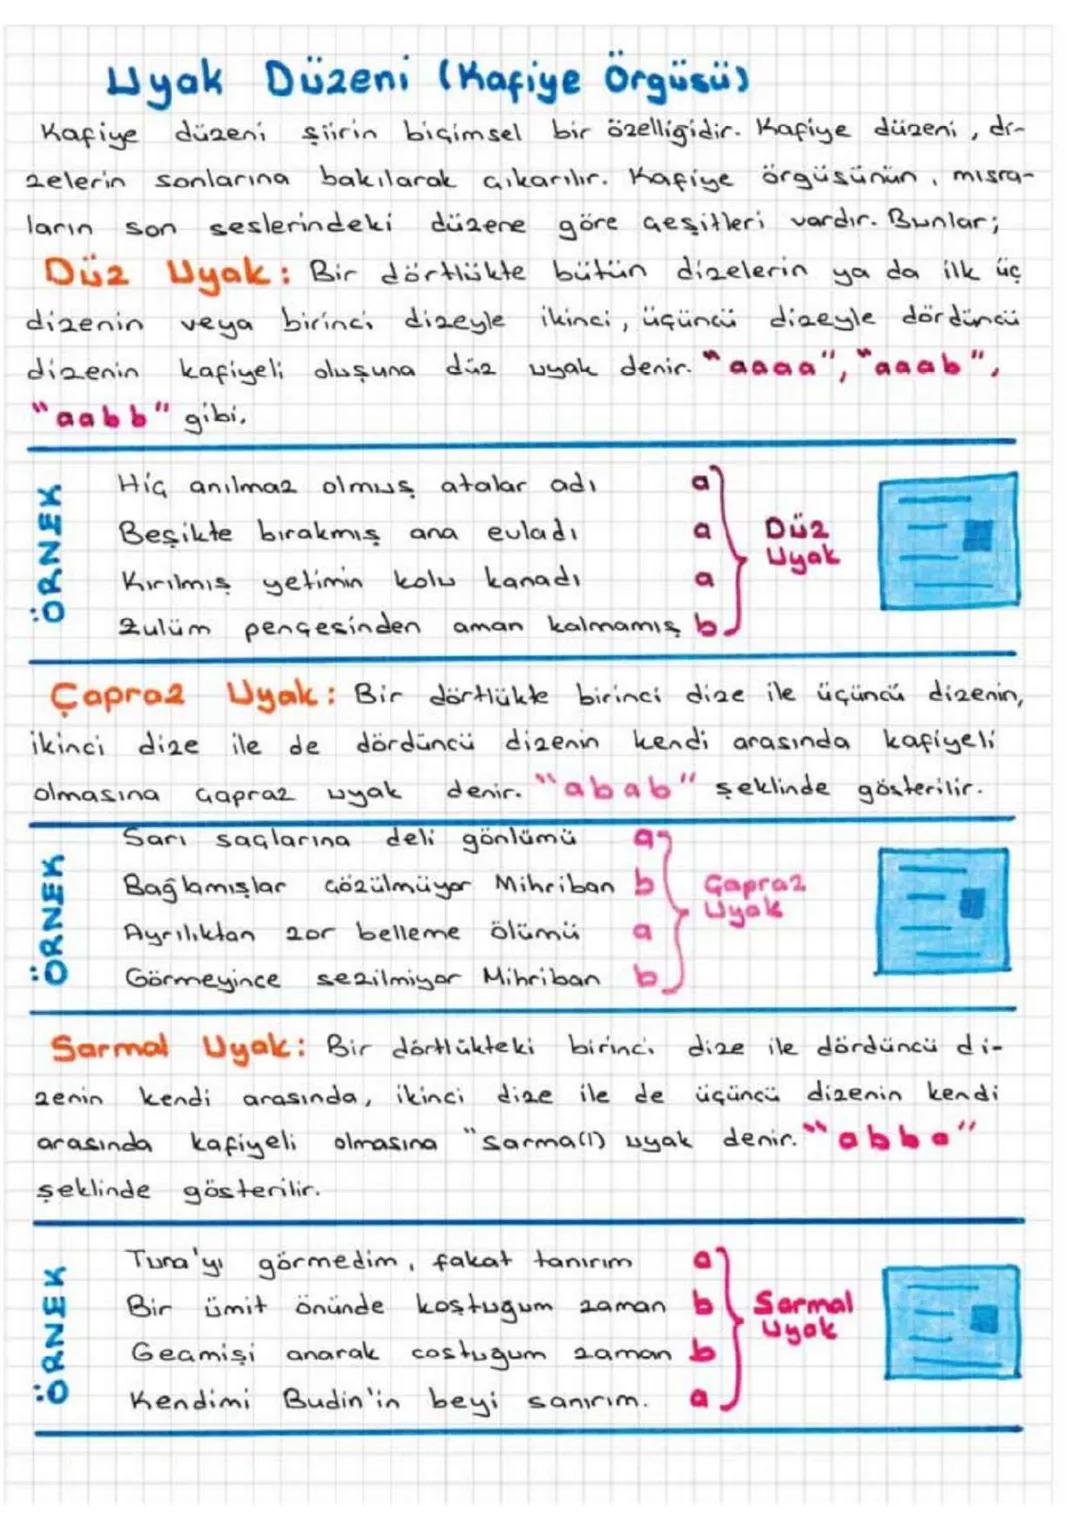 Uyak Düzeni (Kafiye Örgüsü)
Kafiye düzeni şiirin biçimsel bir özelliğidir. Kafiye düzeni, di-
zelerin sonlarına bakılarak çıkarılır. Kafiye örgüsünün, mısra-
ların son seslerindeki düzene göre çeşitleri vardır. Bunlar;
Düz Uyak: Bir dörtlükte bütün dizelerin ya da ilk üç
dizenin veya birinci dizeyle ikinci, üçüncü dizeyle dördüncü
dizenin kafiyeli oluşuna düz uyak denir. "aaaa", "aaab",
"aabb" gibi.
ÖRNEK
Hiç anılmaz olmuş atalar adı a
Beşikte bırakmış ana evladı a
Kırılmış yetimin kolu kanadı a
Zulüm pençesinden aman kalmamış b
Düz
Uyak
Çapraz Uyak: Bir dörtlükte birinci dize ile üçüncü dizenin,
ikinci dize ile de dördüncü dizenin kendi arasında kafiyeli
olmasına çapraz uyak denir. "abab" şeklinde gösterilir.
ÖRNEK
Sarı saçlarına deli gönlümü a
Bağlamışlar çözülmüyor Mihriban b
Ayrılıktan zor belleme ölümü a
Görmeyince sezilmiyor Mihriban b
Çapraz
Uyak
Sarmal Uyak: Bir dörtlükteki birinci dize ile dördüncü di-
zenin kendi arasında, ikinci dize ile de üçüncü dizenin kendi
arasında kafiyeli olmasına "sarma(l) uyak denir. "abba"
şeklinde gösterilir.
ÖRNEK
Tuna'yı görmedim, fakat tanırım a
Bir ümit önünde koştuğum zaman b
Geçmişi anarak coştuğum zaman b
Kendimi Budin'in beyi sanırım. a
Sarmal
Uyak